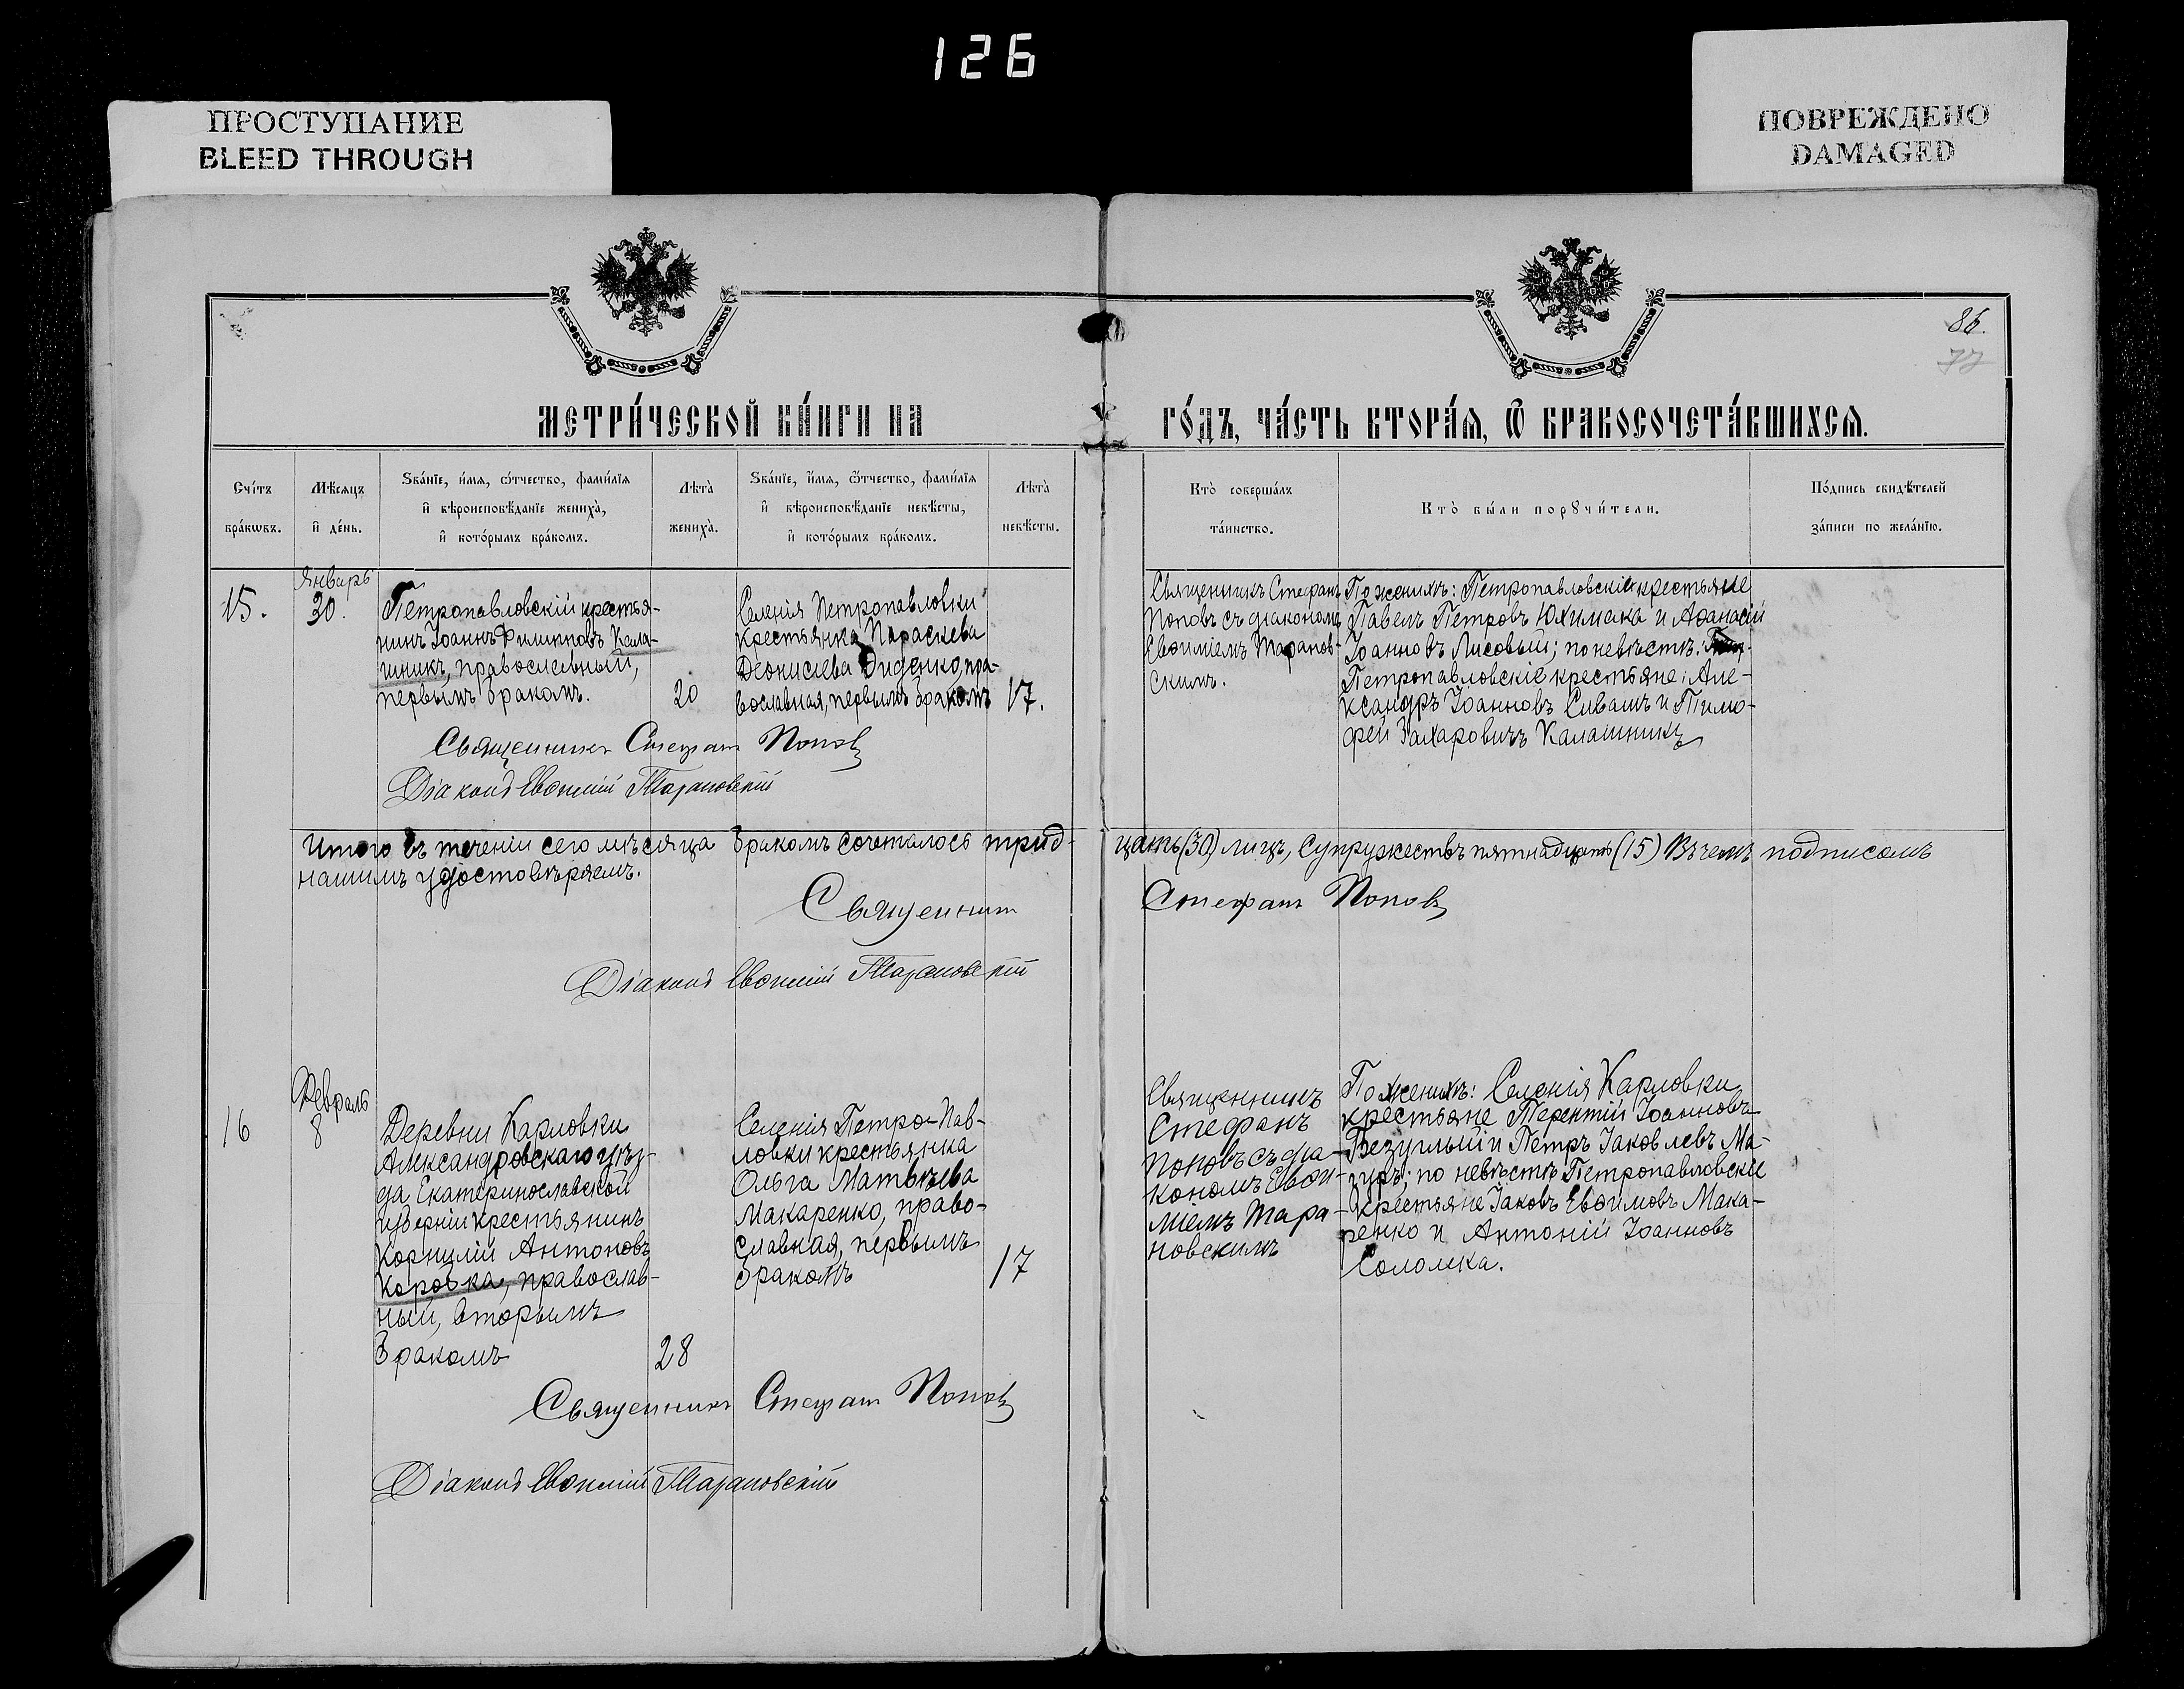 126
ПРОСТУПАНИЕ
BLEED THROUGH
ПОВРЕЖДЕНО
DAMAGED
86.
77
МЕТРИ́ЧЕСКОЙ КНИ́ГИ НА
ГО́ДЪ, ЧА́СТЬ ВТОРА́Я, Ѿ БРАКОСОЧЕТА́ВШИХСѦ.
Сче́тъ
бра́кѡвъ.
Мѣ́сѧцъ
и҆ де́нь.
Ѕва́нїе, и҆́мѧ, ѻ҆́тчество, фами́лїѧ
и҆ вѣроисповѣ́данїе жениха̀,
и҆ кото́рымъ бра́комъ.
Лѣта̀
жениха̀.
Ѕва́нїе, и҆́мѧ, ѻ҆́тчество, фами́лїѧ
и҆ вѣроисповѣ́данїе невѣ́сты,
и҆ кото́рымъ бра́комъ.
Лѣта̀
невѣ́сты.
Кто̀ соверша́лъ
та́инство.
Кто̀ бы́ли порꙋчи́тели.
По́дпись свидѣ́телей
за́писи по жела́нїю.
15.
Январь
30.
Петропавловскій крестья-
нинъ Іоаннъ Филипповъ Кала-
шникъ, православный,
первымъ бракомъ.
20
Селенія Петропавловки
крестьянка Параскева
Діонисіева Диденко, пра-
вославная, первымъ бракомъ
17.
Священникъ Стефанъ
Поповъ съ діакономъ
Евѳиміемъ Таранов-
скимъ.
По женихѣ: Петропавловскіе крестьяне
Павелъ Петровъ Юхимака и Аѳанасій
Іоанновъ Лисовый; по невѣстѣ:
Петропавловскіе крестьяне: Але-
ксандръ Іоанновъ Сивашъ и Тимо-
фей Захаровичъ Калашникъ
Священникъ Стефанъ Поповъ
Діаконъ Евѳимій Тарановскій
Итого въ теченіи сего мѣсяца бракомъ сочеталось трид-
цать (30) лицъ, супружествъ пятнадцать (15) Въ чемъ подписомъ
нашимъ удостовѣряемъ.
Священникъ
Стефанъ Поповъ
Діаконъ Евѳимій Тарановскій
16
Февраль
8
Деревни Карловки
Александровскаго уѣз-
да Екатеринославской
губерніи крестьянинъ
Корнилій Антоновъ
Коровка, православ-
ный, вторымъ
бракомъ
28
Селенія Петро-Пав-
ловки крестьянка
Ольга Матвѣева
Макаренко, право-
славная, первымъ
бракомъ
17
Священникъ
Стефанъ
Поповъ съ діа-
кономъ Евѳи-
міемъ Тара-
новскимъ
По женихѣ: Селенія Карловки
крестьяне Терентій Іоанновъ
Безуглый и Петръ Іаковлевъ Ма-
зуръ; по невѣстѣ Петропавловскіе
крестьяне Іаковъ Евѳимовъ Мака-
ренко и Антоній Іоанновъ
Соломка.
Священникъ Стефанъ Поповъ
Діаконъ Евѳимій Тарановскій